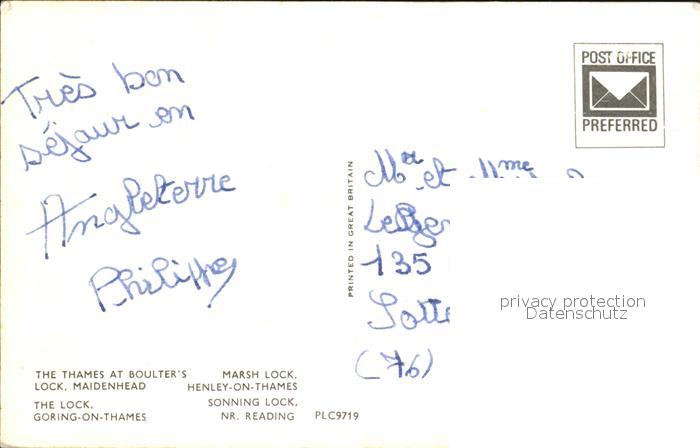 Très bon
séjour en
Angleterre
Philippe
POST OFFICE
PREFERRED
PRINTED IN GREAT BRITAIN
Mr et Mme
135
Sotte
(76)
privacy protection
Datenschutz
THE THAMES AT BOULTER'S
LOCK, MAIDENHEAD
MARSH LOCK,
HENLEY-ON-THAMES
THE LOCK,
GORING-ON-THAMES
SONNING LOCK,
NR. READING
PLC9719